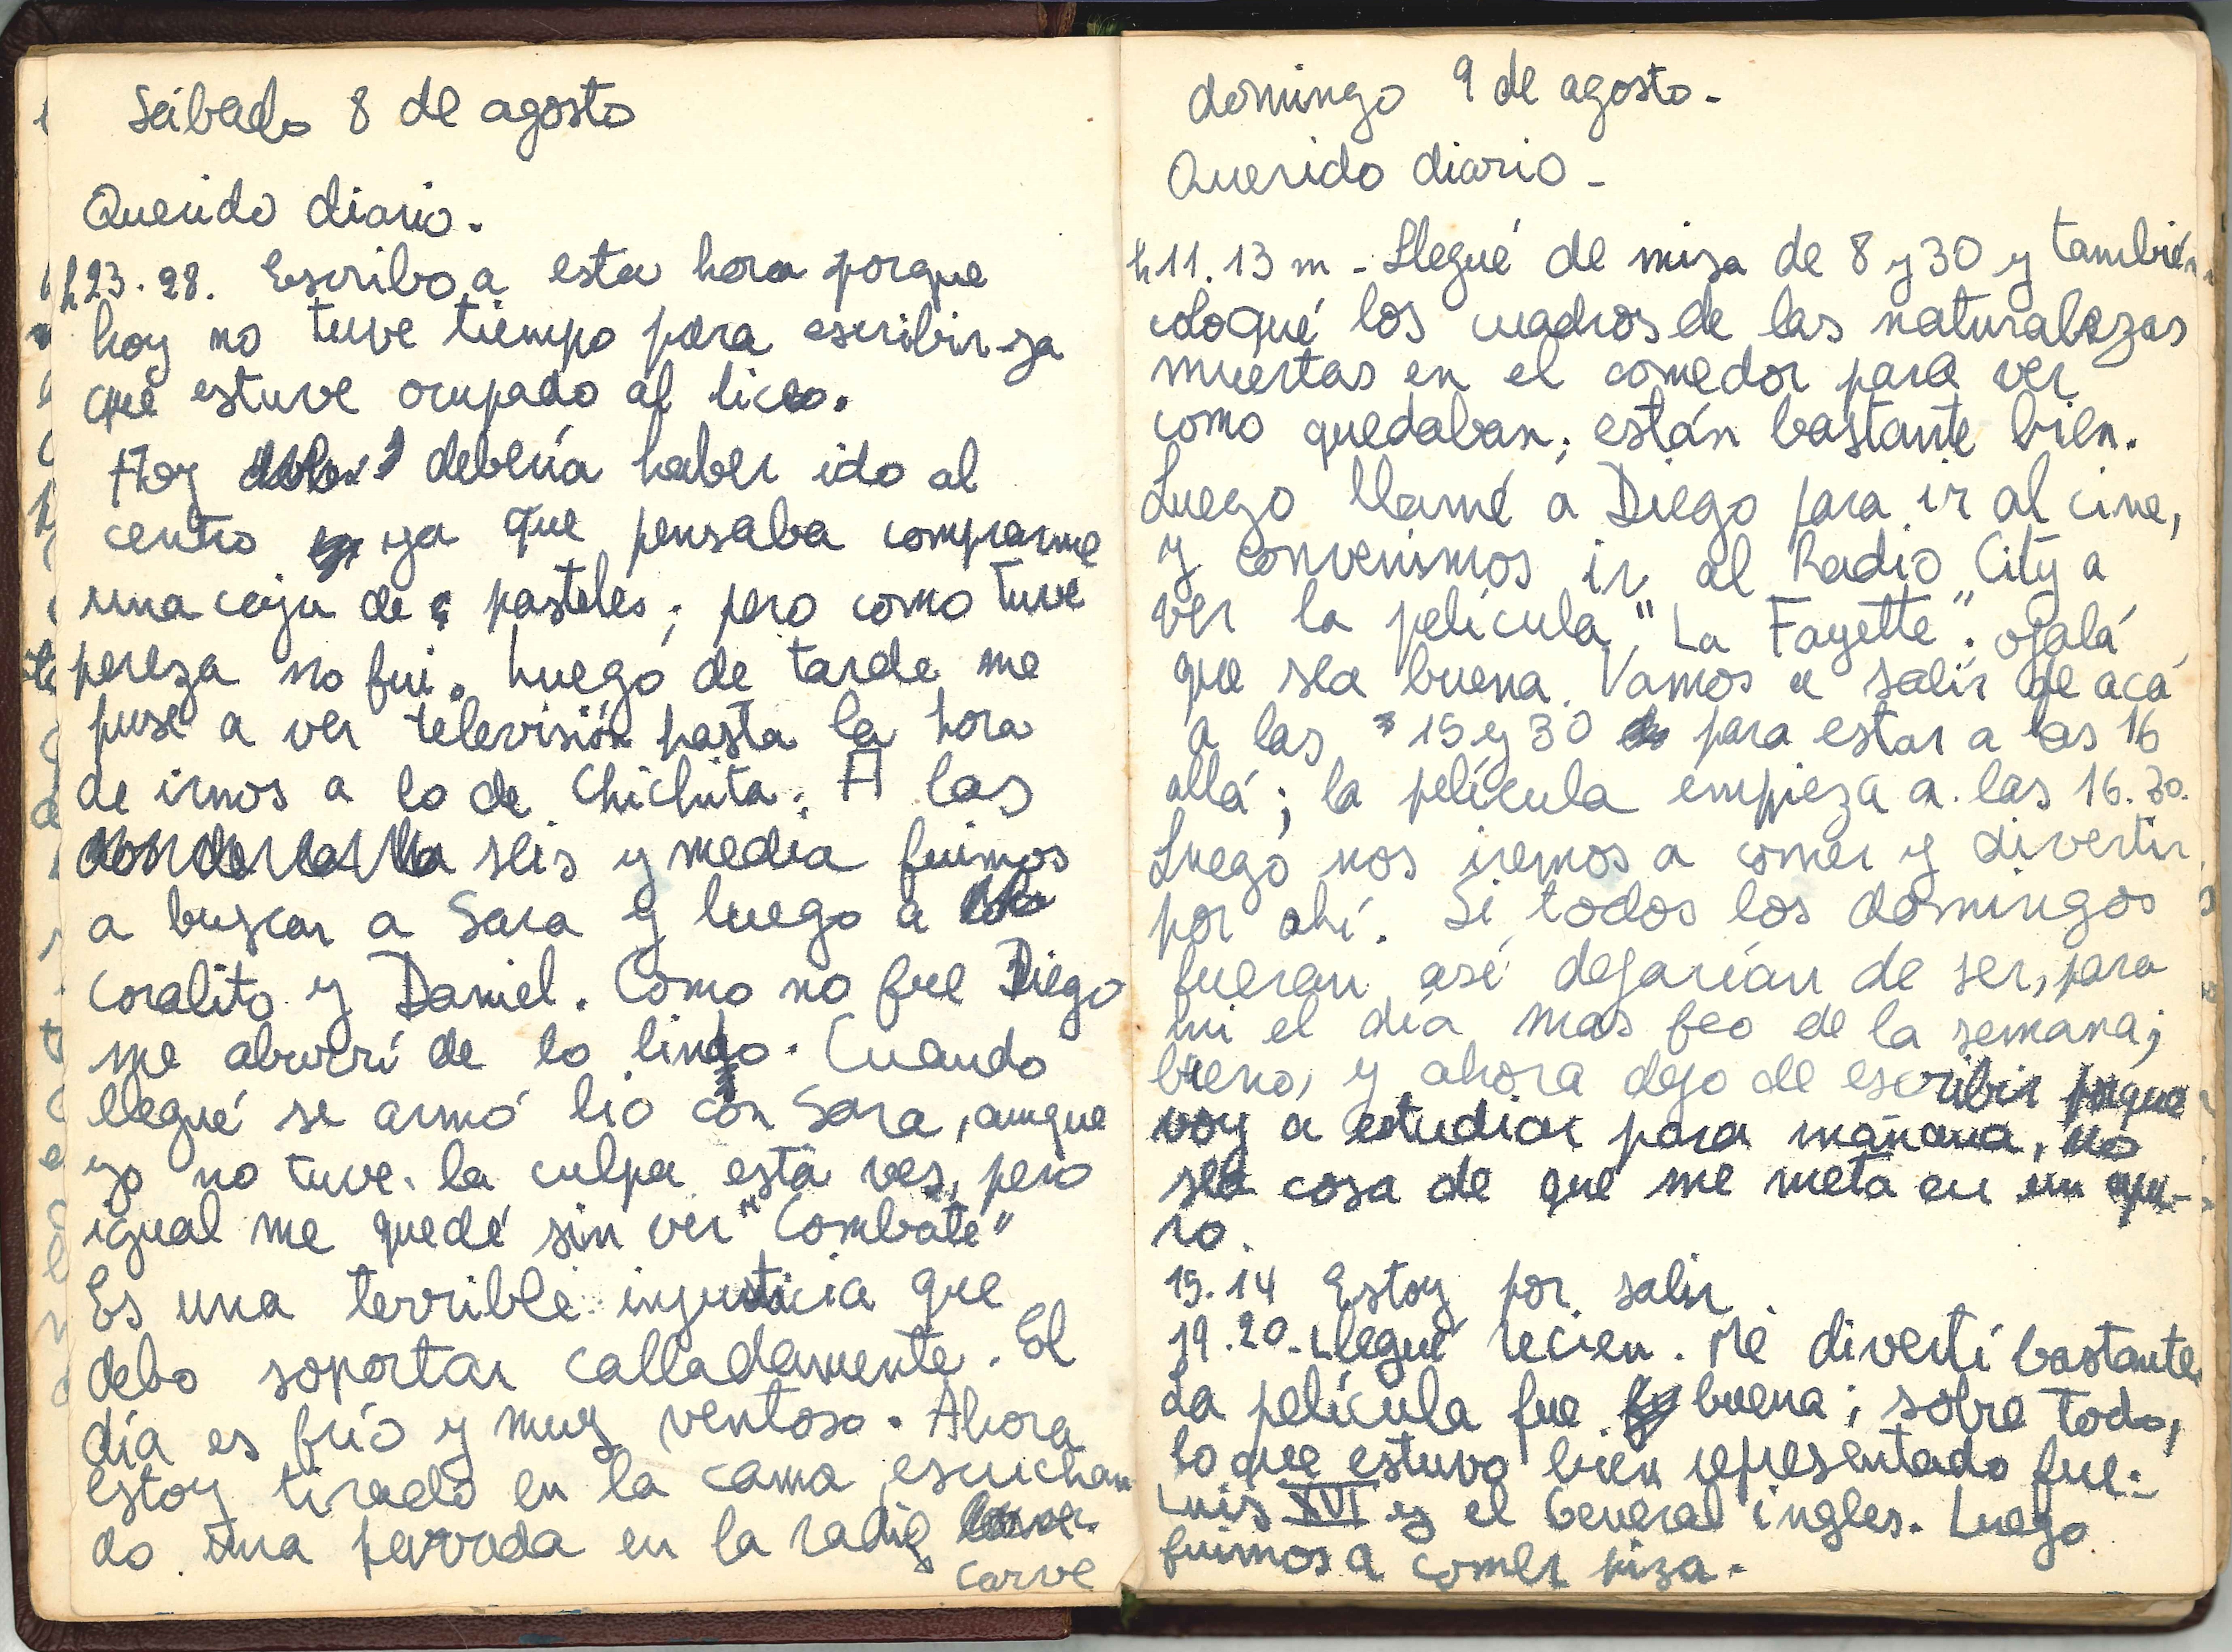 Sábado 8 de agosto
Querido diario.
h23.28. Escribo a esta hora porque
hoy no tuve tiempo para escribir ya
que estuve ocupado al liceo.
Hoy debería haber ido al
centro ya que pensaba comprarme
una caja de pasteles; pero como tuve
pereza no fui. Luego de tarde me
puse a ver televisión hasta la hora
de irnos a lo de Chichita. A las
seis y media fuimos
a buscar a Sara y luego a
Coralito y Daniel. Como no fue Diego
me aburrí de lo lindo. Cuando
llegué se armó lío con Sara, aunque
yo no tuve la culpa esta ves, pero
igual me quedé sin ver "Combate"
Es una terrible injusticia que
debo soportar calladamente. El
día es frío y muy ventoso. Ahora
estoy tirado en la cama escuchan
do una pavada en la radio
Carve
domingo 9 de agosto.
Querido diario-
h11.13 m - Llegué de misa de 8 y 30 y también
coloqué los cuadros de las naturalezas
muertas en el comedor para ver
como quedaban; están bastante bien.
Luego llamé a Diego para ir al cine,
y convenimos ir al Radio City a
ver la película "La Fayette". ojalá
que sea buena. Vamos a salir de acá
a las 15 y 30 para estar a las 16
allá; la película empieza a las 16.30.
Luego nos iremos a comer y divertir
por ahí. Si todos los domingos
fueran así dejarían de ser, para
mi el día mas feo de la semana;
bueno, y ahora dejo de escribir porque
voy a estudiar para mañana, no
sea cosa de que me meta en un apu-
ro.
15.14 Estoy por salir
19.20-Llegué recien. Me divertí bastante
La película fue buena; sobre todo,
lo que estuvo bien representado fue:
Luis XVI y el General ingles. Luego
fuimos a comer piza.